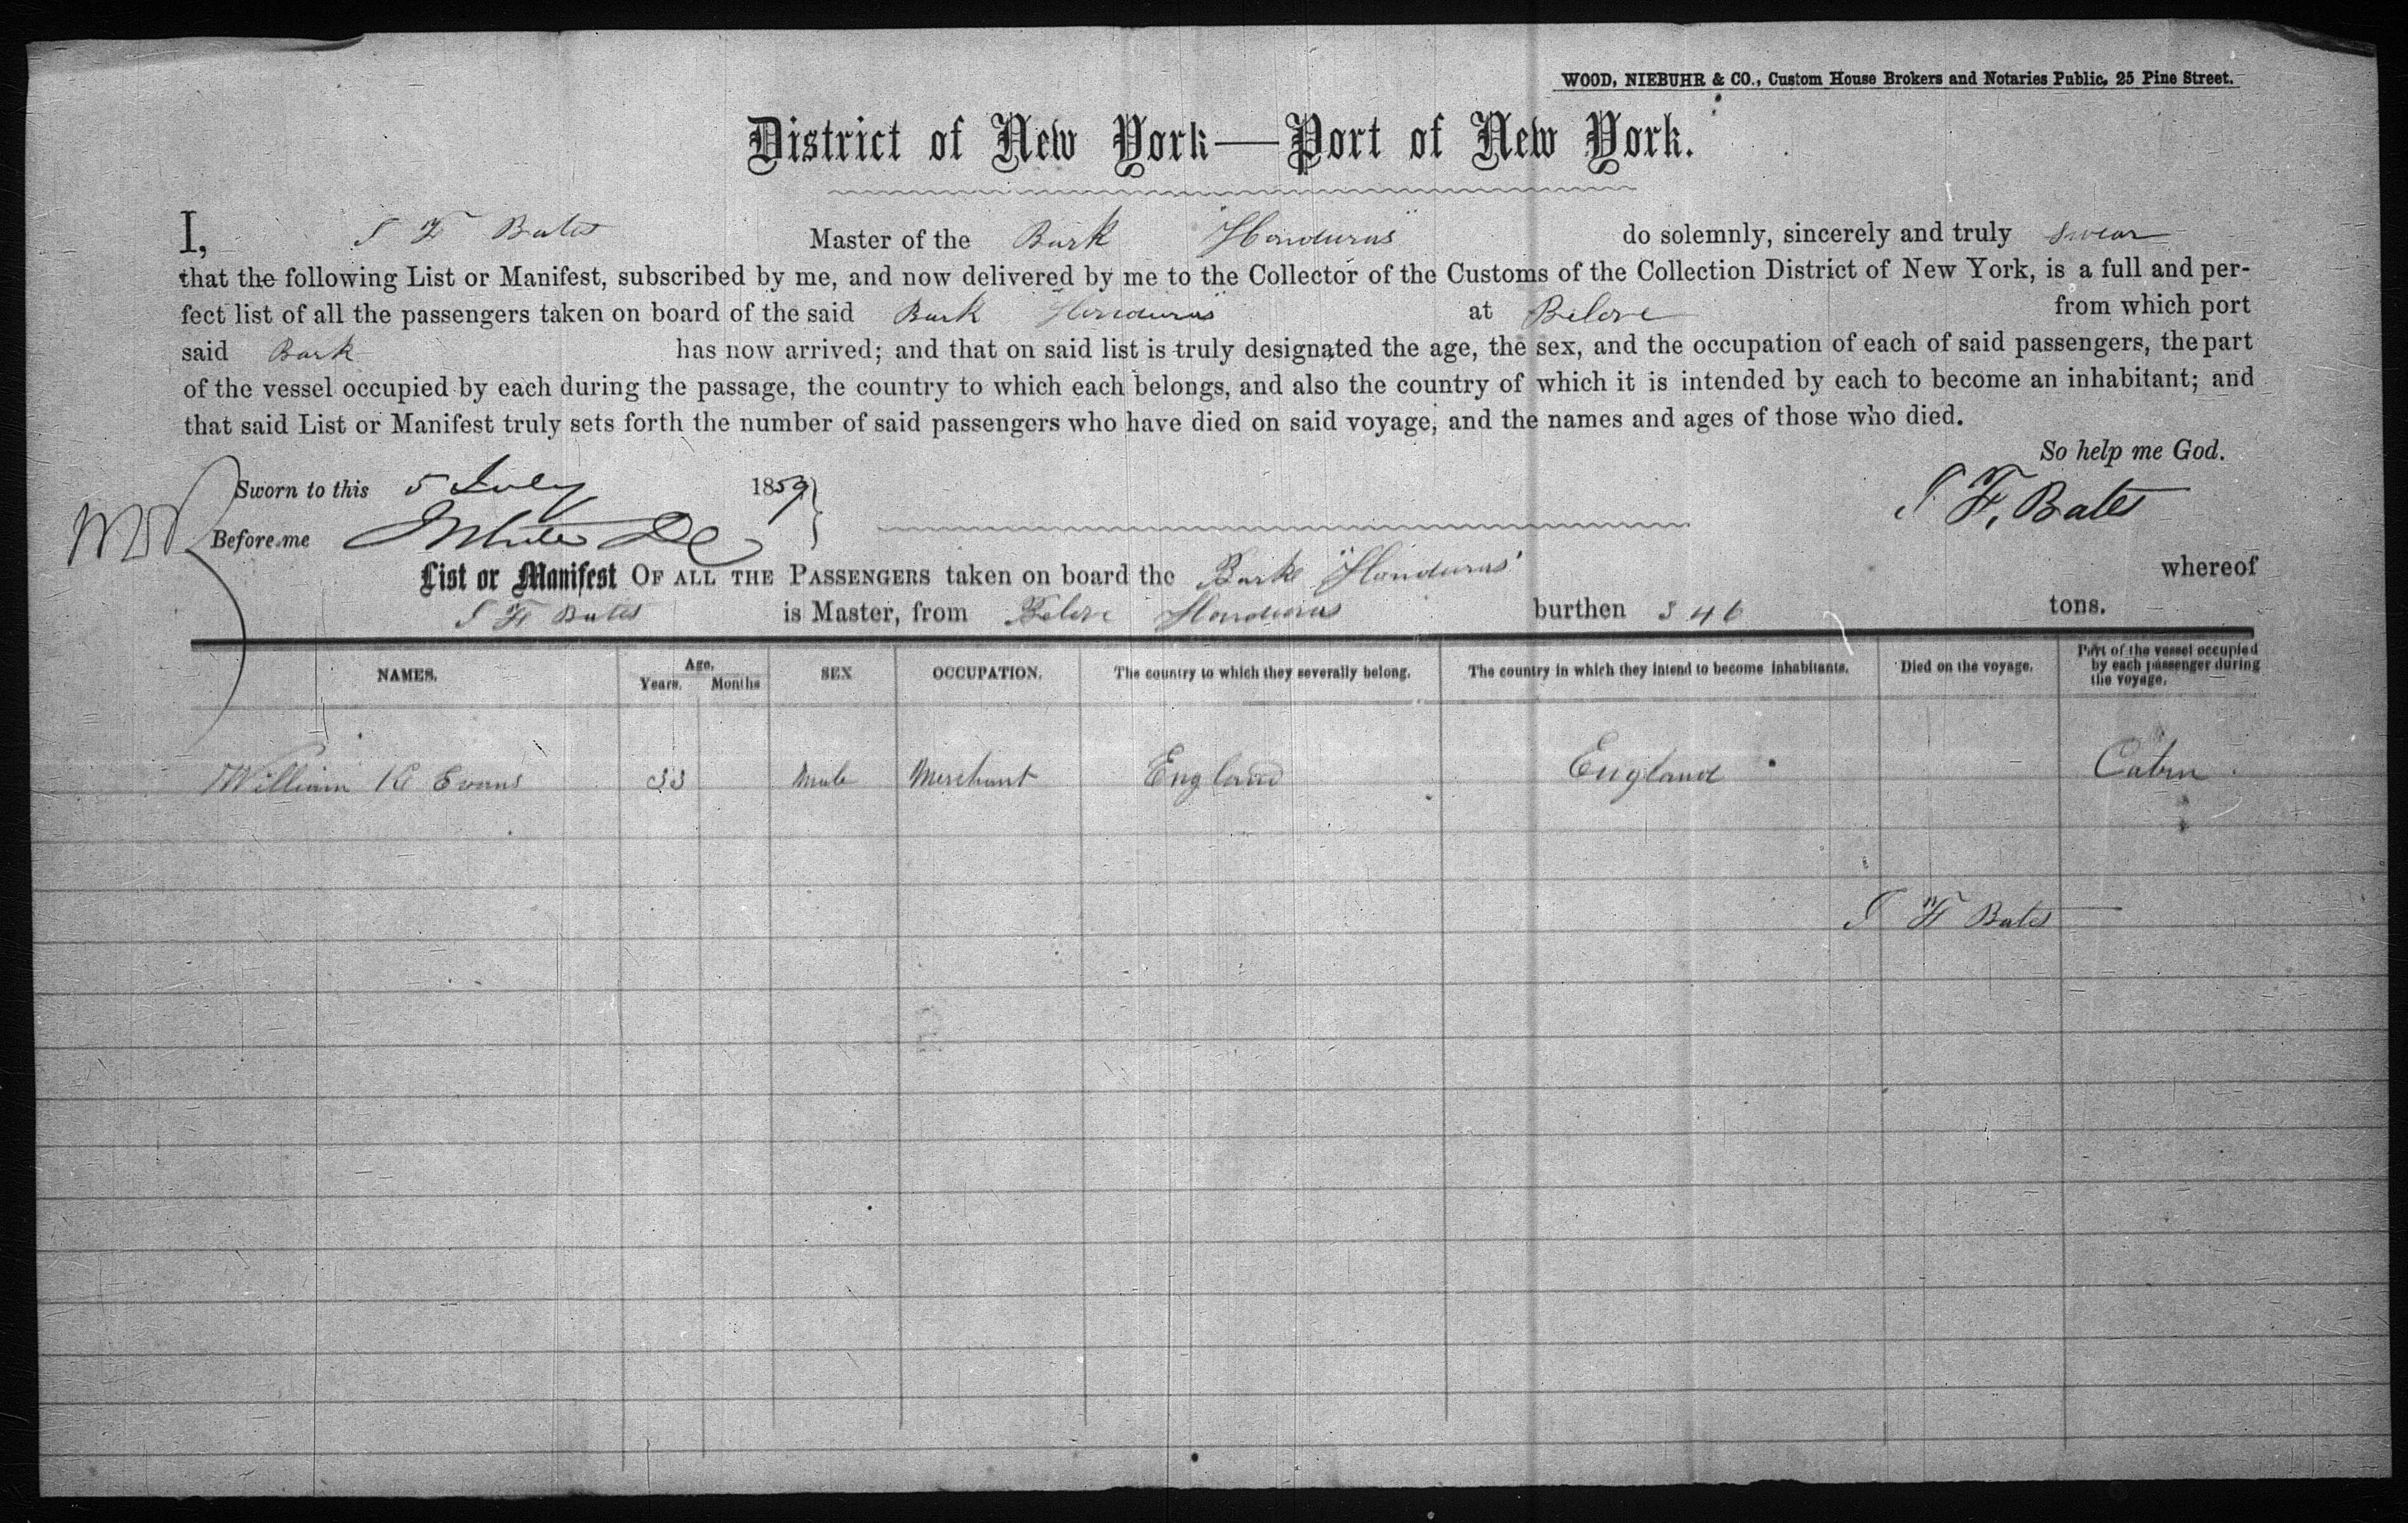 WOOD, NIEBUHR & CO., Custom House Brokers and Notaries Public, 25 Pine Street.
District of New York—Port of New York.
I, S F Bates Master of the Bark "Honduras" do solemnly, sincerely and truly swear
that the following List or Manifest, subscribed by me, and now delivered by me to the Collector of the Customs of the Collection District of New York, is a full and per-
fect list of all the passengers taken on board of the said Bark Honduras at Belize from which port
said Bark has now arrived; and that on said list is truly designated the age, the sex, and the occupation of each of said passengers, the part
of the vessel occupied by each during the passage, the country to which each belongs, and also the country of which it is intended by each to become an inhabitant; and
that said List or Manifest truly sets forth the number of said passengers who have died on said voyage, and the names and ages of those who died.
So help me God.
Sworn to this 5 July 1859
S F. Bates
Before me
List or Manifest OF ALL THE PASSENGERS taken on board the Barke "Honduras" whereof
S F Bates is Master, from Belize Honduras burthen 346 tons.
NAMES. Age. Years. Months SEX OCCUPATION. The country to which they severally belong. The country in which they intend to become inhabitants. Died on the voyage. Part of the vessel occupied by each passenger during the voyage.
William K Evans 33 Male Merchant England England Cabin
S F Bates